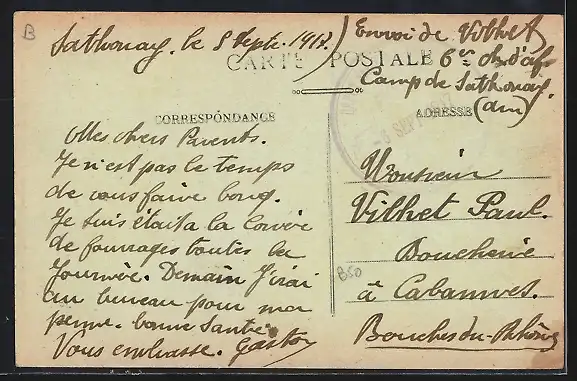 B
Sathonay, le 8 Septe. 1917.
Envoi de Vilhet
6e ch. d'af.
Camp de Sathonay.
(Ain)
CARTE POSTALE
CORRESPONDANCE
ADRESSE
SEP
Mes chers Parents.
Je n'est pas le temps
de vous faire long.
Je suis était a la Corvée
de fourrages toutes la
Journée. Demain J'irai
au bureau pour ma
perme. bonne Santé
Vous embrasse. Gaston
Monsieur
Vilhet Paul.
Boucherie
à Cabannes.
Bouches-du-Rhône
B50